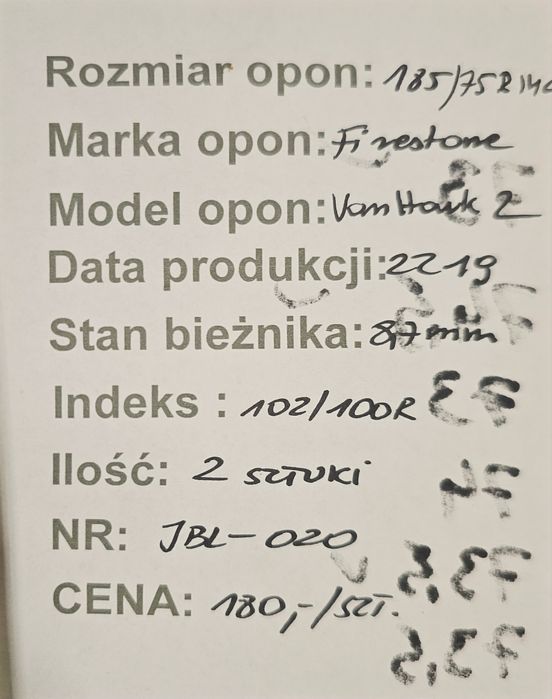 Rozmiar opon: 185/75R14C
Marka opon: Firestone
Model opon: VanHawk 2
Data produkcji: 2219
Stan bieżnika: 8,7 mm
Indeks : 102/100R
Ilość: 2 SZTUKI
NR: JBL-020
CENA: 180,-/SZT.